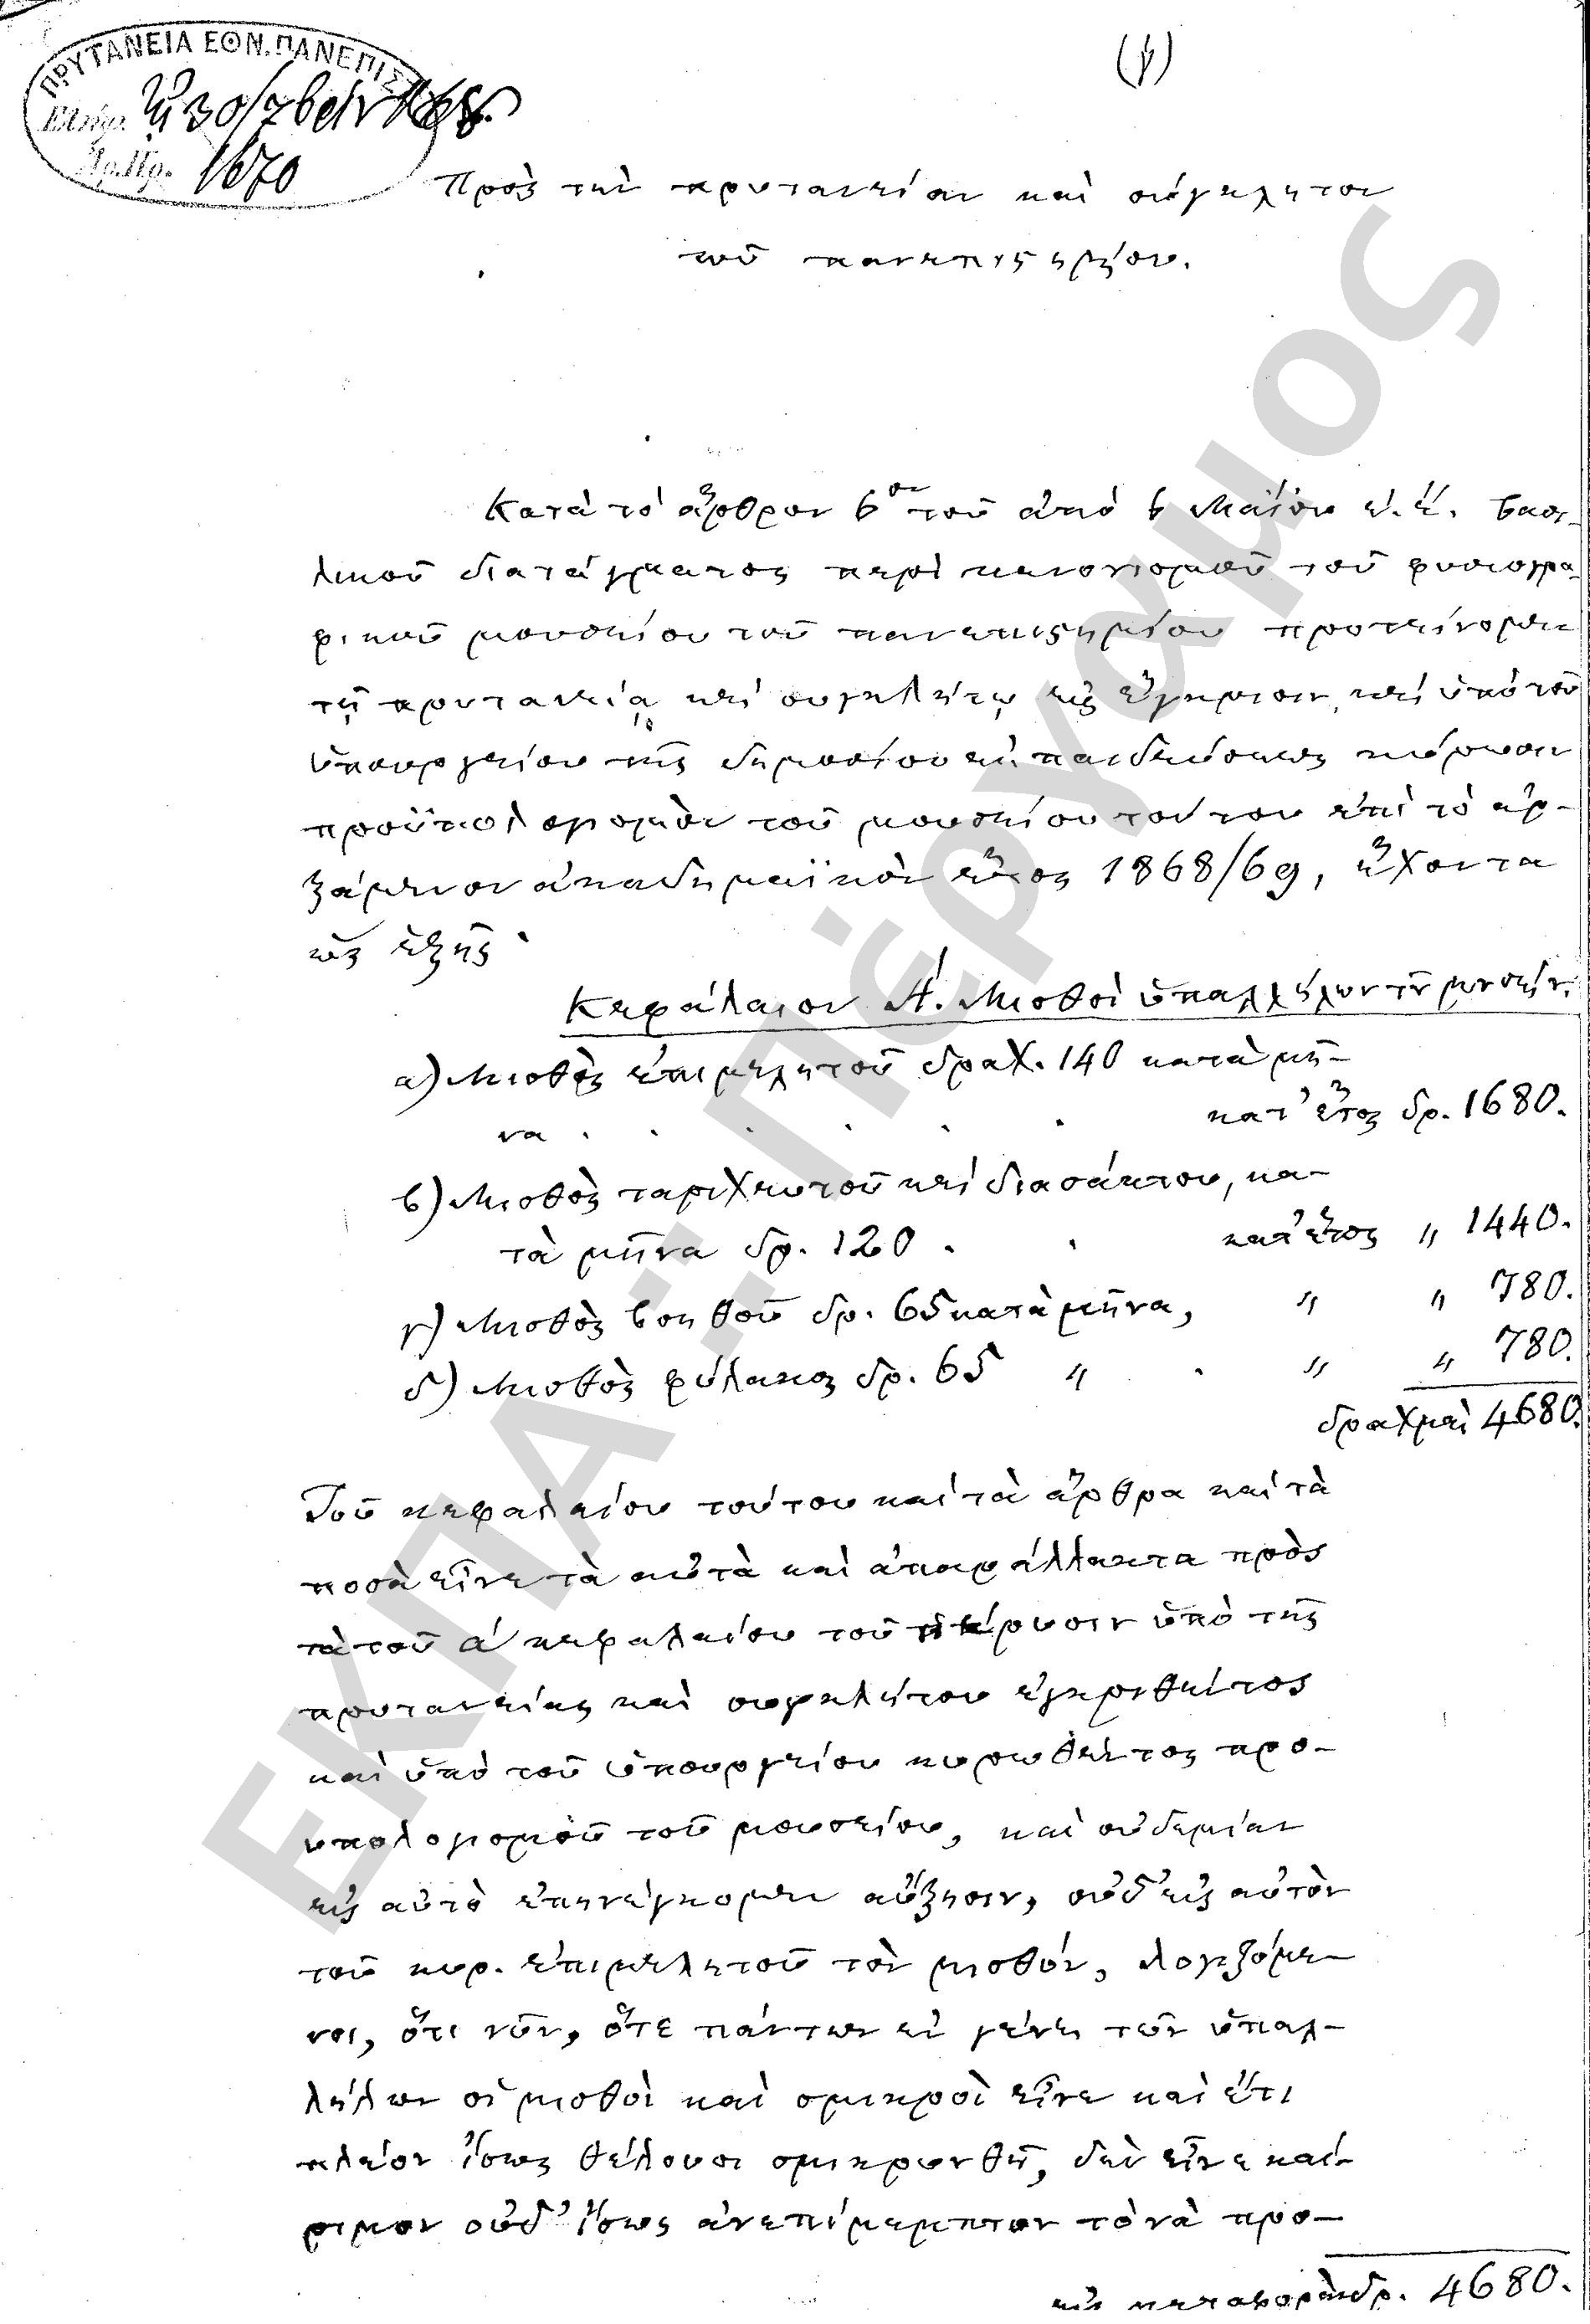 ΠΡΥΤΑΝΕΙΑ ΕΘΝ. ΠΑΝΕΠΙΣ
Ἐλήφ. τῇ 30/7βρίου 868
Ἀρ. Πρ. 1670
Πρὸς τὴν πρυτανείαν καὶ σύγκλητον
τοῦ πανεπιστημίου.
Κατὰ τὸ ἄρθρον 6ον τοῦ ἀπὸ 6 Μαΐου ἐ. ἔ. βασι-
λικοῦ διατάγματος περὶ κανονισμοῦ τοῦ φυσιογρα-
φικοῦ μουσείου τοῦ πανεπιστημίου προτείνομεν
τῇ πρυτανείᾳ καὶ συγκλήτῳ εἰς ἔγκρισιν, καὶ ὑπὸ τοῦ
ὑπουργείου τῆς δημοσίου ἐκπαιδεύσεως κύρωσιν
προϋπολογισμὸν τοῦ μουσείου τούτου ἐπὶ τὸ ἀρ-
ξάμενον ἀκαδημαϊκὸν ἔτος 1868/69, ἔχοντα
ὡς ἑξῆς·
Κεφάλαιον Α΄. Μισθοὶ ὑπαλλήλων τοῦ μουσείου.
α) Μισθὸς ἐπιμελητοῦ δραχ. 140 κατὰ μῆ-
να . . . . . . κατ' ἔτος δρ. 1680.
β) Μισθὸς ταριχευτοῦ καὶ διασάκτου, κα-
τὰ μῆνα δρ. 120 . . κατ' ἔτος " 1440.
γ) Μισθὸς βοηθοῦ δρ. 65 κατὰ μῆνα, " " 780.
δ) Μισθὸς φύλακος δρ. 65 " . " " 780.
δραχμαὶ 4680.
Τοῦ κεφαλαίου τούτου καὶ τὰ ἄρθρα καὶ τὰ
ποσὰ εἶνε τὰ αὐτὰ καὶ ἀπαράλλακτα πρὸς
τὰ τοῦ α΄ κεφαλαίου τοῦ πέρυσιν ὑπὸ τῆς
πρυτανείας καὶ συγκλήτου ἐγκριθέντος
καὶ ὑπὸ τοῦ ὑπουργείου κυρωθέντος προ-
υπολογισμοῦ τοῦ μουσείου, καὶ οὐδεμίαν
εἰς αὐτὸ ἐπηνέγκομεν αὔξησιν, οὐδ' εἰς αὐτὸν
τοῦ κυρ. ἐπιμελητοῦ τὸν μισθόν, λογιζόμε-
νοι, ὅτι νῦν, ὅτε πάντων ἐν γένει τῶν ὑπαλ-
λήλων οἱ μισθοὶ καὶ σμικροὶ εἶνε καὶ ἔτι
πλέον ἴσως θέλουσι σμικρυνθῆ, δὲν εἶνε καί-
ριμον οὐδ' ἴσως ἀνεπίμεμπτον τὸ νὰ προ-
εἰς μεταφορὰν δρ. 4680.
ΕΚΠΑ.: Πέργαμος